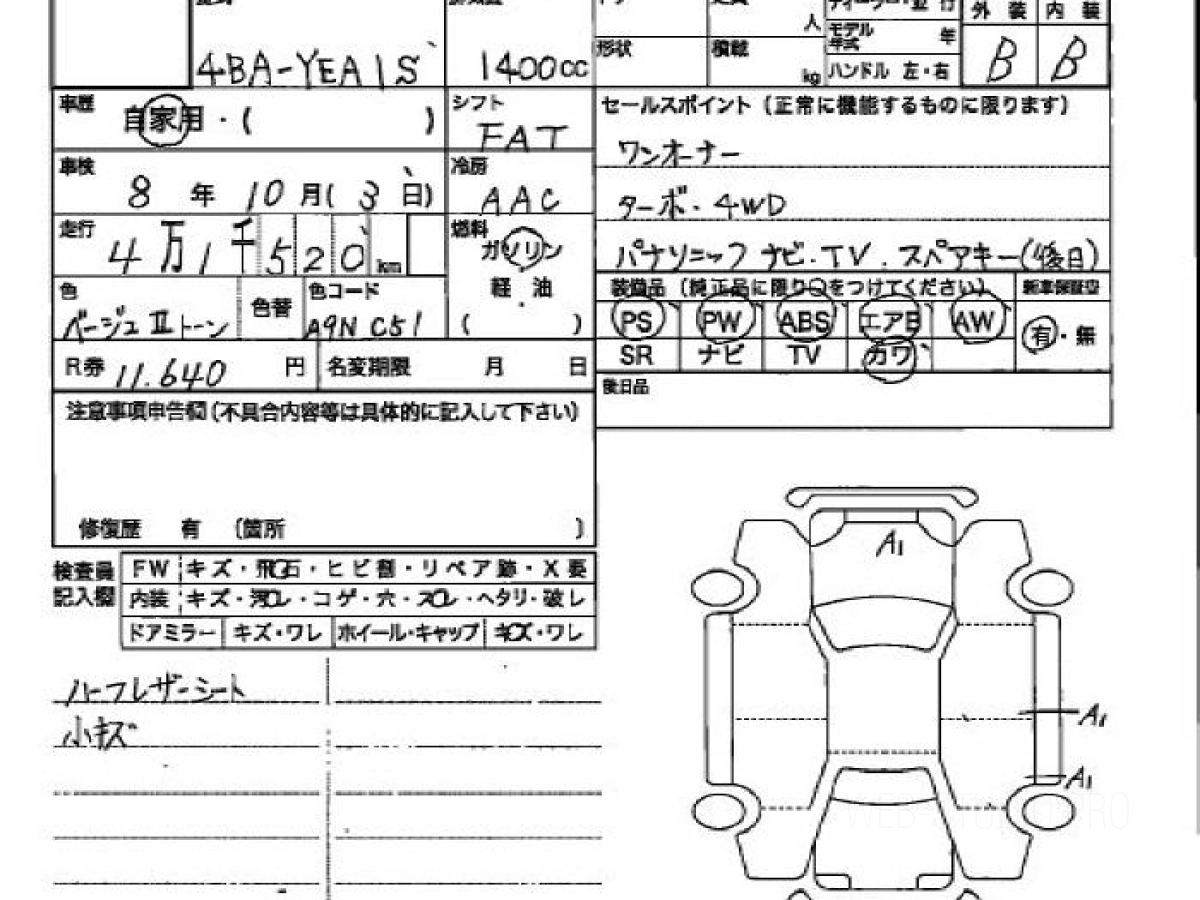 外装 内装
人 モデル年式 年
4BA-YEA1S 1400cc 形状 積載 kg ハンドル 左・右 B B
車歴 自家用・( ) シフト FAT
セールスポイント(正常に機能するものに限ります)
ワンオーナー
ターボ・4WD
パナソニックナビ・TV.スペアキー(後日)
車検 8年10月(3日) 冷房 AAC
走行 4万1千520km 燃料 ガソリン
軽油
( )
色 ベージュⅡトーン 色替 色コード A9N C51
装備品(純正品に限り○をつけてください) 新車保証書
PS PW ABS エアB AW 有・無
SR ナビ TV カワ
R券 11.640円 名変期限 月 日
後日品
注意事項申告欄(不具合内容等は具体的に記入して下さい)
修復歴 有 (箇所 )
検査員記入欄 FW キズ・飛石・ヒビ割・リペア跡・X要
内装 キズ・汚レ・コゲ・穴・スレ・ヘタリ・破レ
ドアミラー キズ・ワレ ホイール・キャップ キズ・ワレ
ハーフレザーシート
小キズ
A1
A1
A1